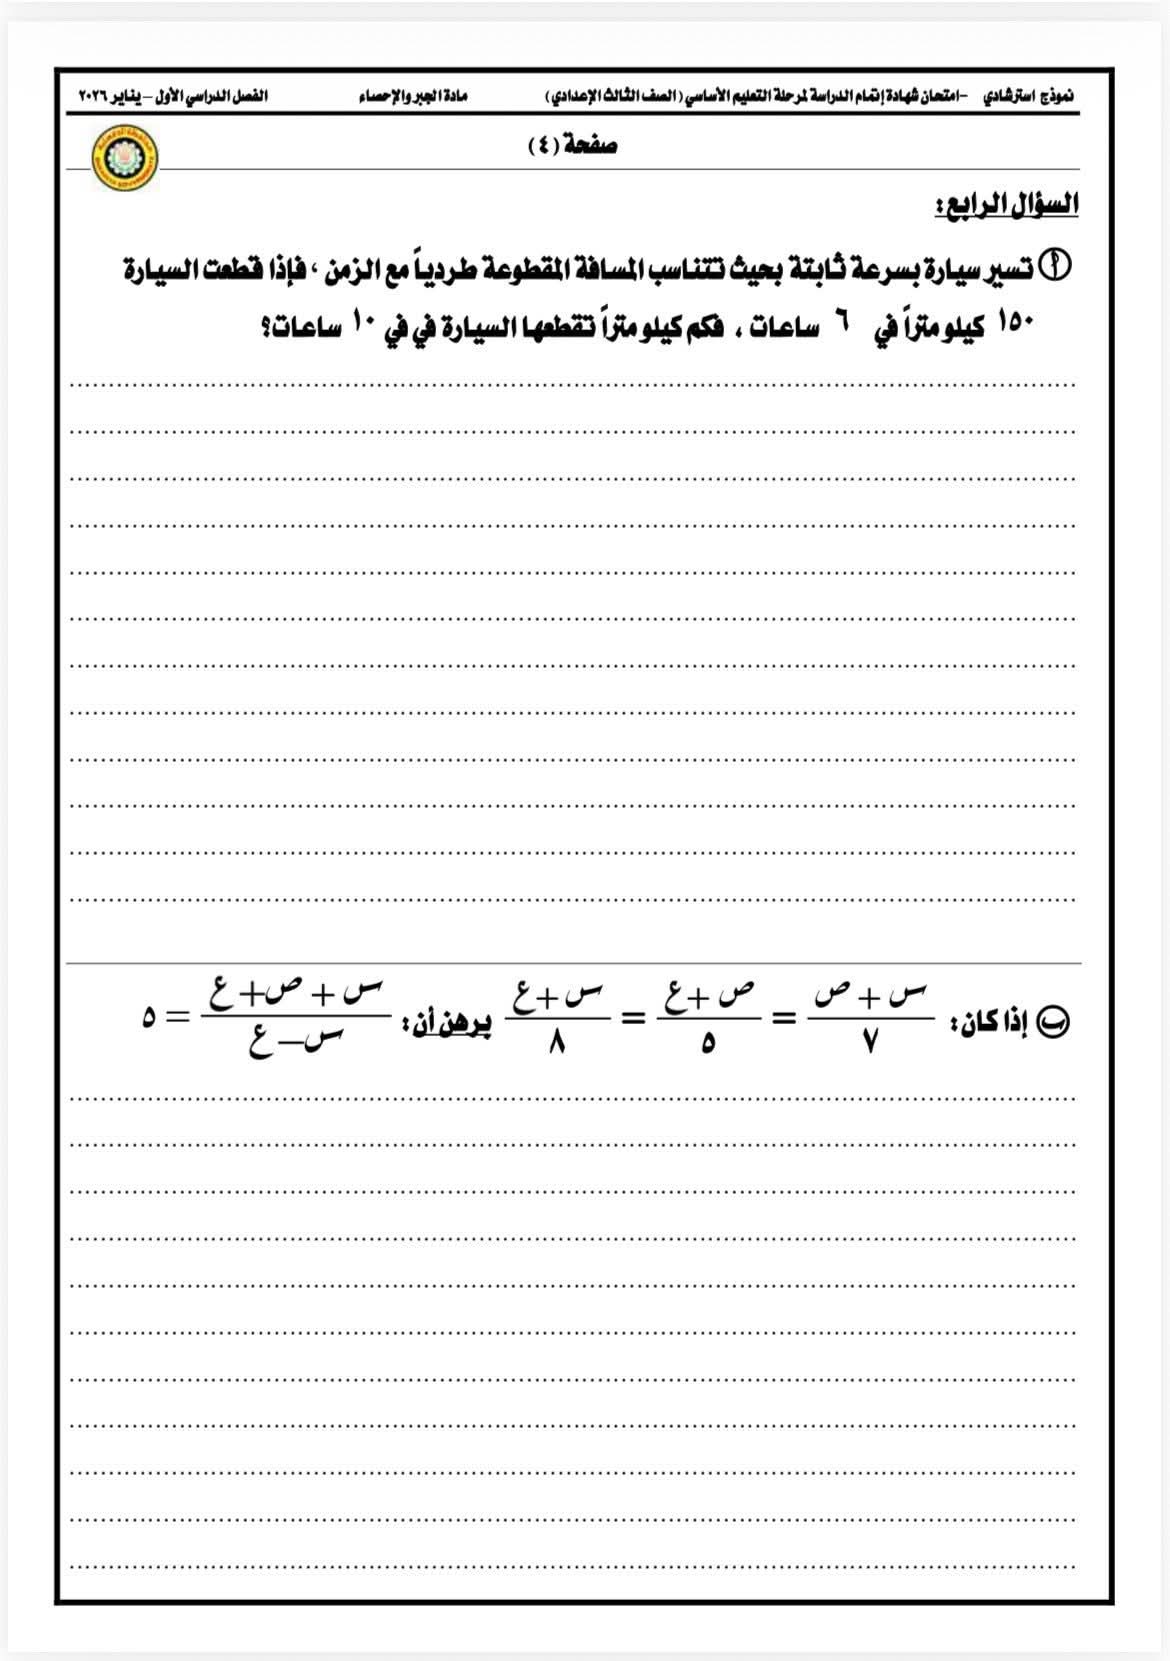 نموذج استرشادي –امتحان شهادة إتمام الدراسة لمرحلة التعليم الأساسي (الصف الثالث الإعدادي) مادة الجبر والإحصاء الفصل الدراسي الأول – يناير ٢٠٢٦
صفحة (٤)
السؤال الرابع:
أ تسير سيارة بسرعة ثابتة بحيث تتناسب المسافة المقطوعة طردياً مع الزمن ، فإذا قطعت السيارة
١٥٠ كيلو متراً في ٦ ساعات ، فكم كيلو متراً تقطعها السيارة في في ١٠ ساعات؟
ب إذا كان: (س + ص)/٧ = (ص + ع)/٥ = (س + ع)/٨ برهن أن: (س + ص + ع)/(س – ع) = ٥